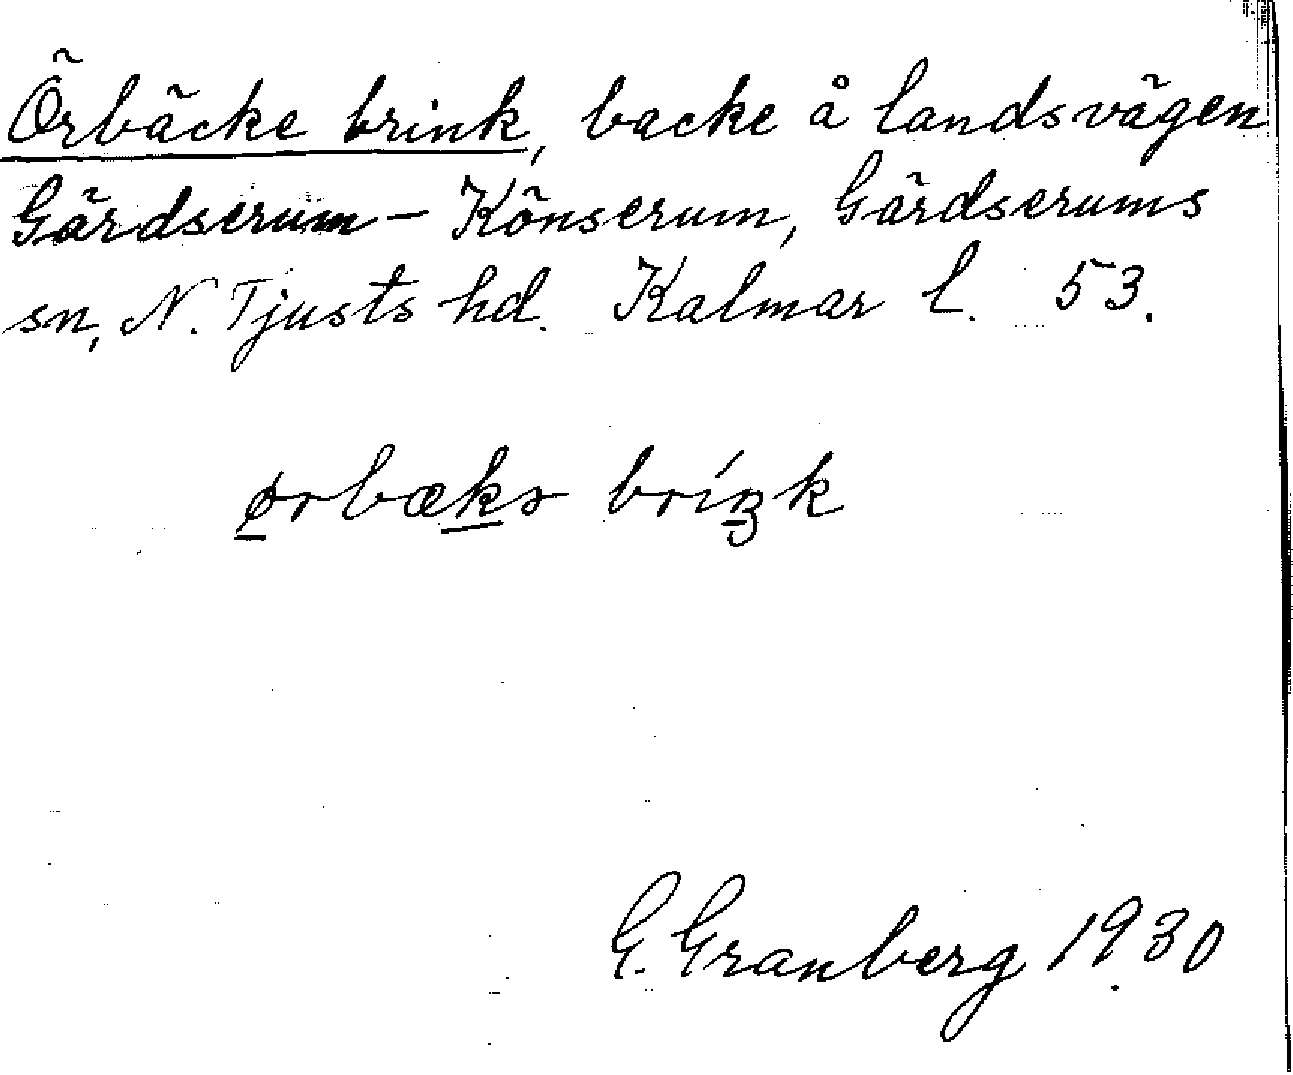 Örbäcke brink, backe å landsvägen
Gärdserum - Könserum, Gärdserums
sn, N. Tjusts hd. Kalmar l. 53.
ørbækə bríŋk
G. Granberg 1930